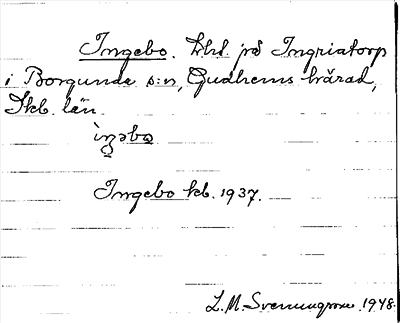 Ingebo. Lht. på Ingriatorp
i Borgunda s:n, Gudhems härad,
Skb. län.
ìŋəbo
Ingebo kb. 1937.
L. M. Svenungsson 1948.